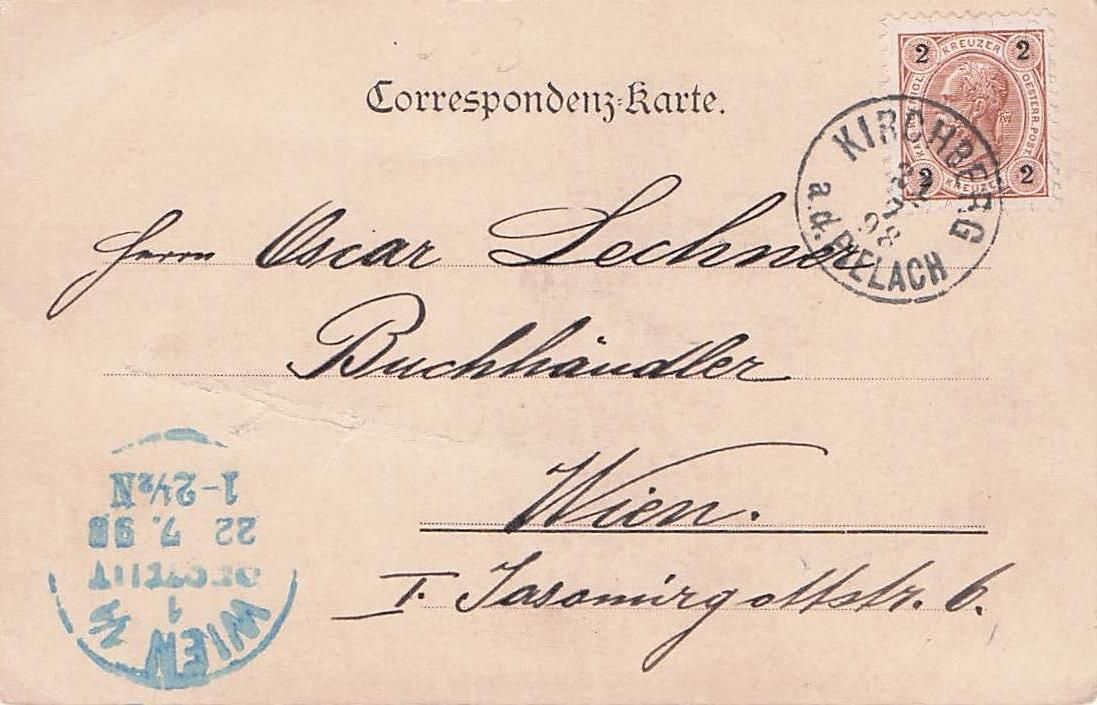 Correspondenz-Karte.
2 KREUZER 2
KAIS. KÖNIGL. OESTERR. POST.
2 KREUZER 2
KIRCHBERG
98
a.d. PIELACH
Herrn Oscar Lechner
Buchhändler
Wien.
I. Jasomirgottstr. 6.
WIEN
1
BESTELLT
22 7.98
1-2½N